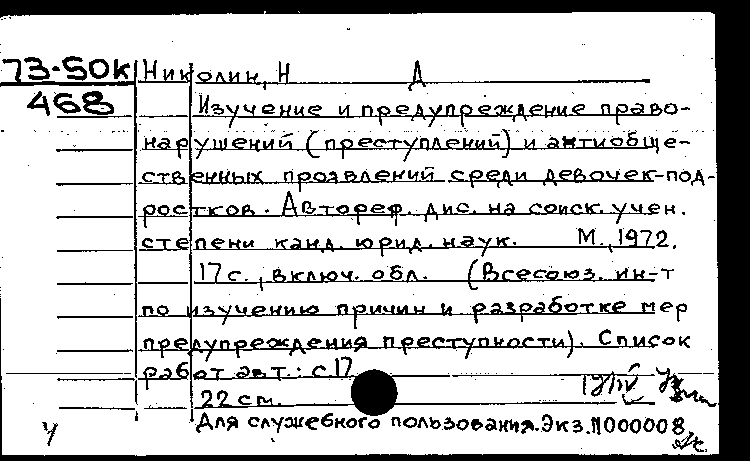 73-50к Николин, Н Д
468 Изучение и предупреждение право-
нарушений (преступлений) и антиобще-
ственных проявлений среди девочек-под-
ростков. Автореф. дис. на соиск. учен.
степени канд. юрид. наук. М., 1972.
17 с., включ. обл. (Всесоюз. ин-т
по изучению причин и разработке мер
предупреждения преступности). Список
работ авт.: с. 17
22 см.
Для служебного пользования. Экз. N000008